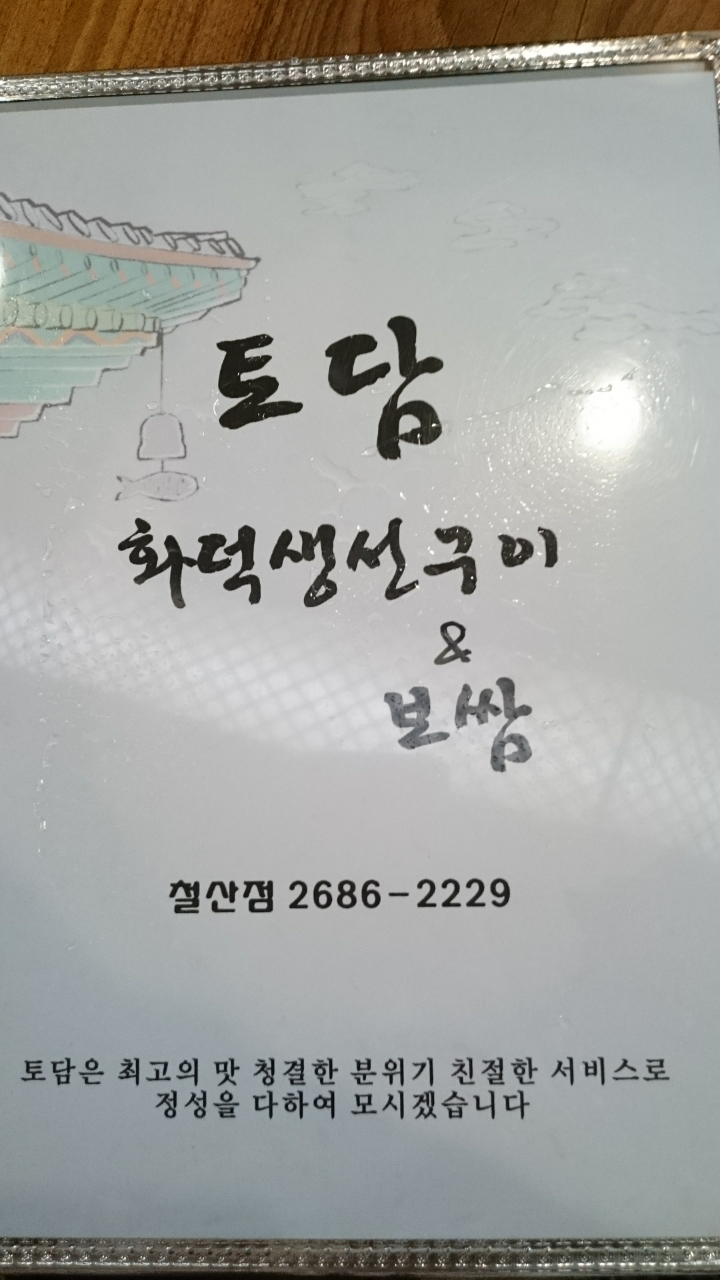 토담
화덕생선구이
&
보쌈
철산점 2686-2229
토담은 최고의 맛 청결한 분위기 친절한 서비스로
정성을 다하여 모시겠습니다